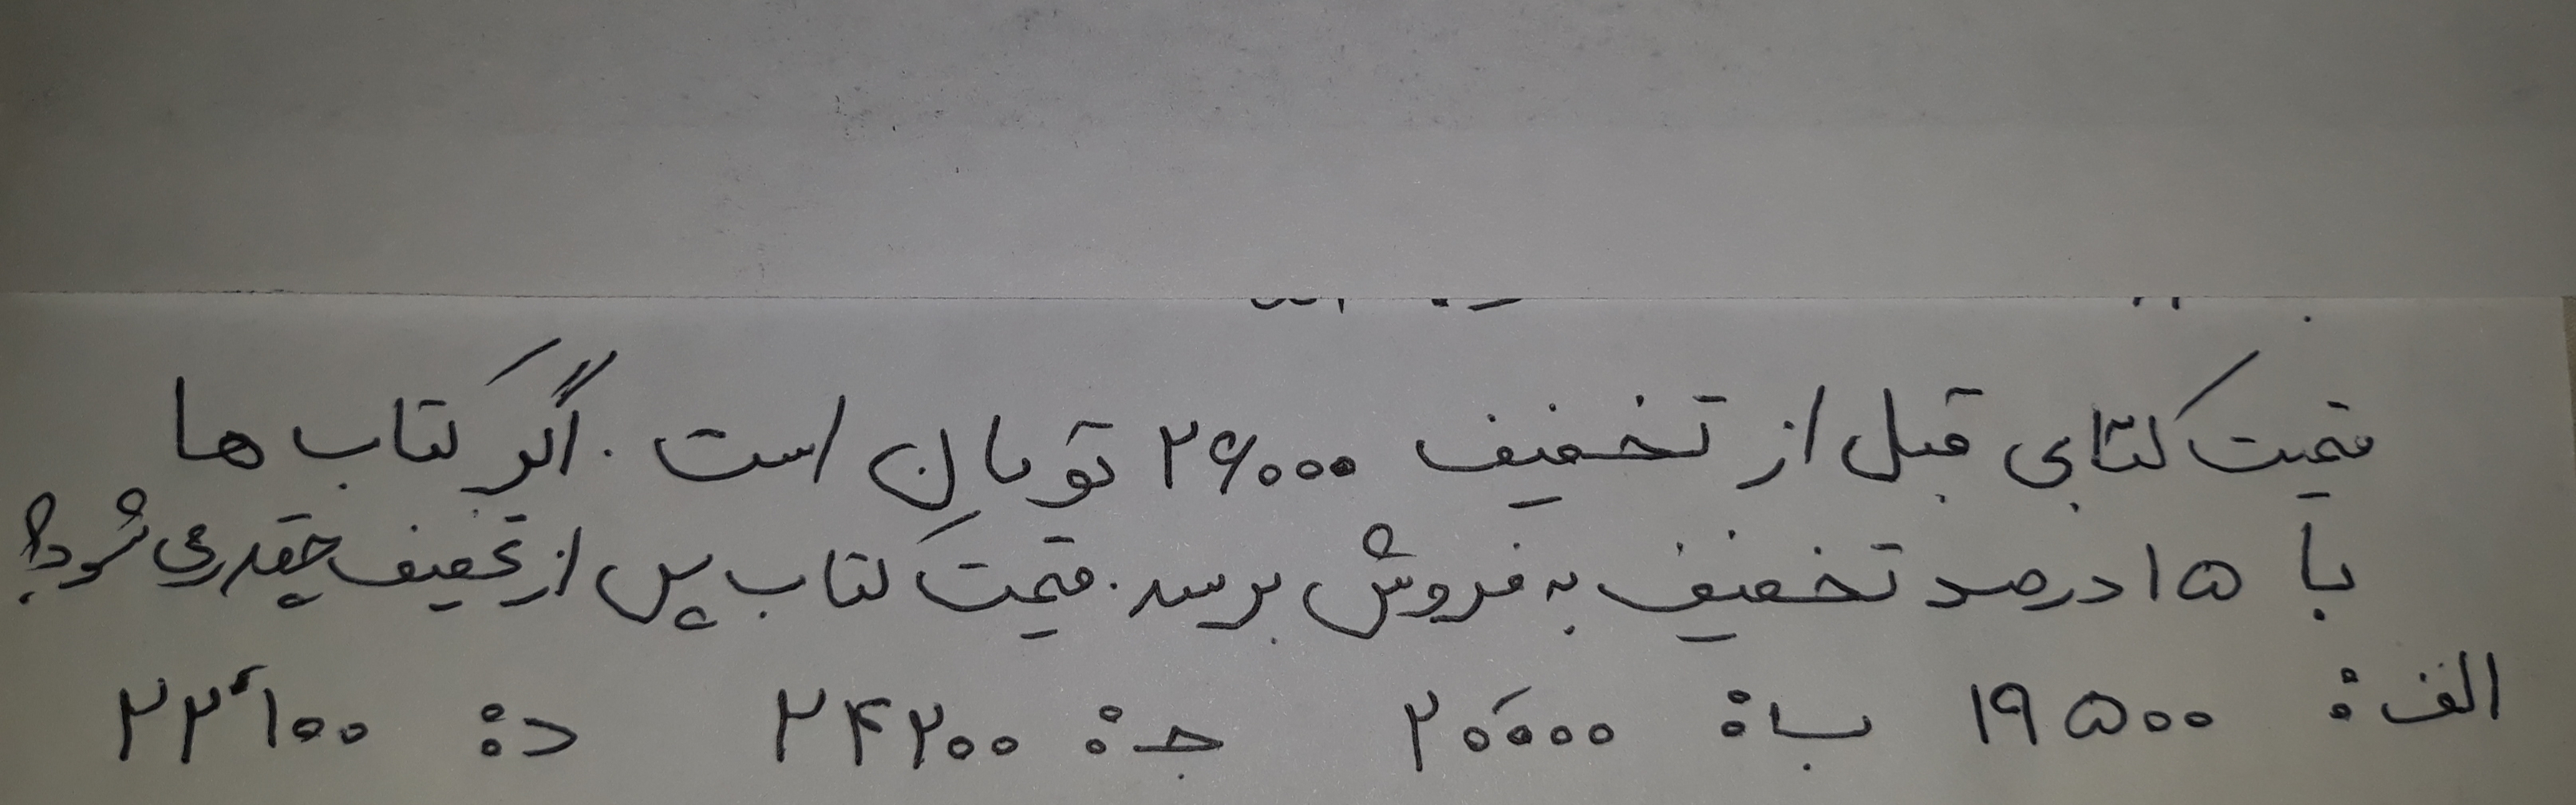 قیمت کتابی قبل از تخفیف ۲۶۰۰۰ تومان است . اگر کتاب ها
با ۱۵ درصد تخفیف به فروش برسد . قیمت کتاب پس از تخفیف چقدر می شود؟
الف: ۱۹۵۰۰ ب: ۲۰٬۰۰۰ ج: ۲۴۲۰۰ د: ۲۲٬۱۰۰